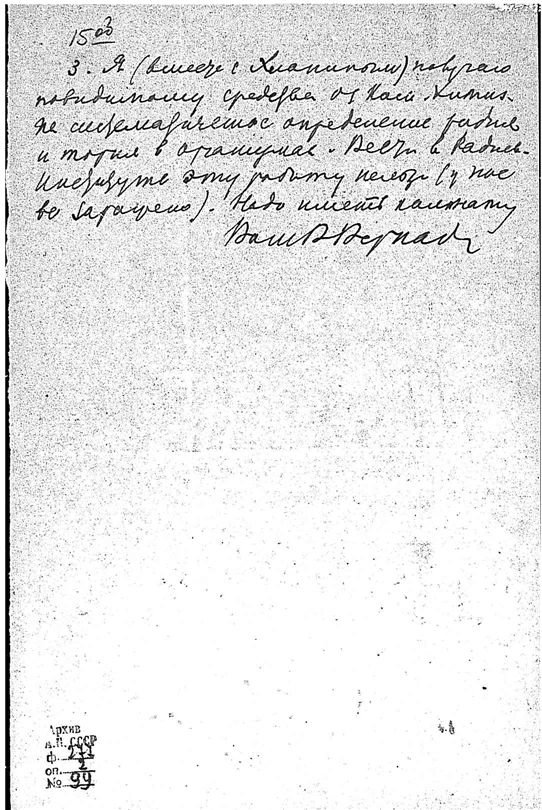 15 об
3. Я (вместе с Хлопиным) получаю
повидимому средства от Ком. Химиз.
на систематическое определение радия
и тория в организмах. Вести в Радиев.
Институте эту работу нельзя (у нас
все заражено). Надо иметь комнату
Ваш В Вернадс
Архив
А.Н. СССР
ф. 277
оп. 2
№ 99